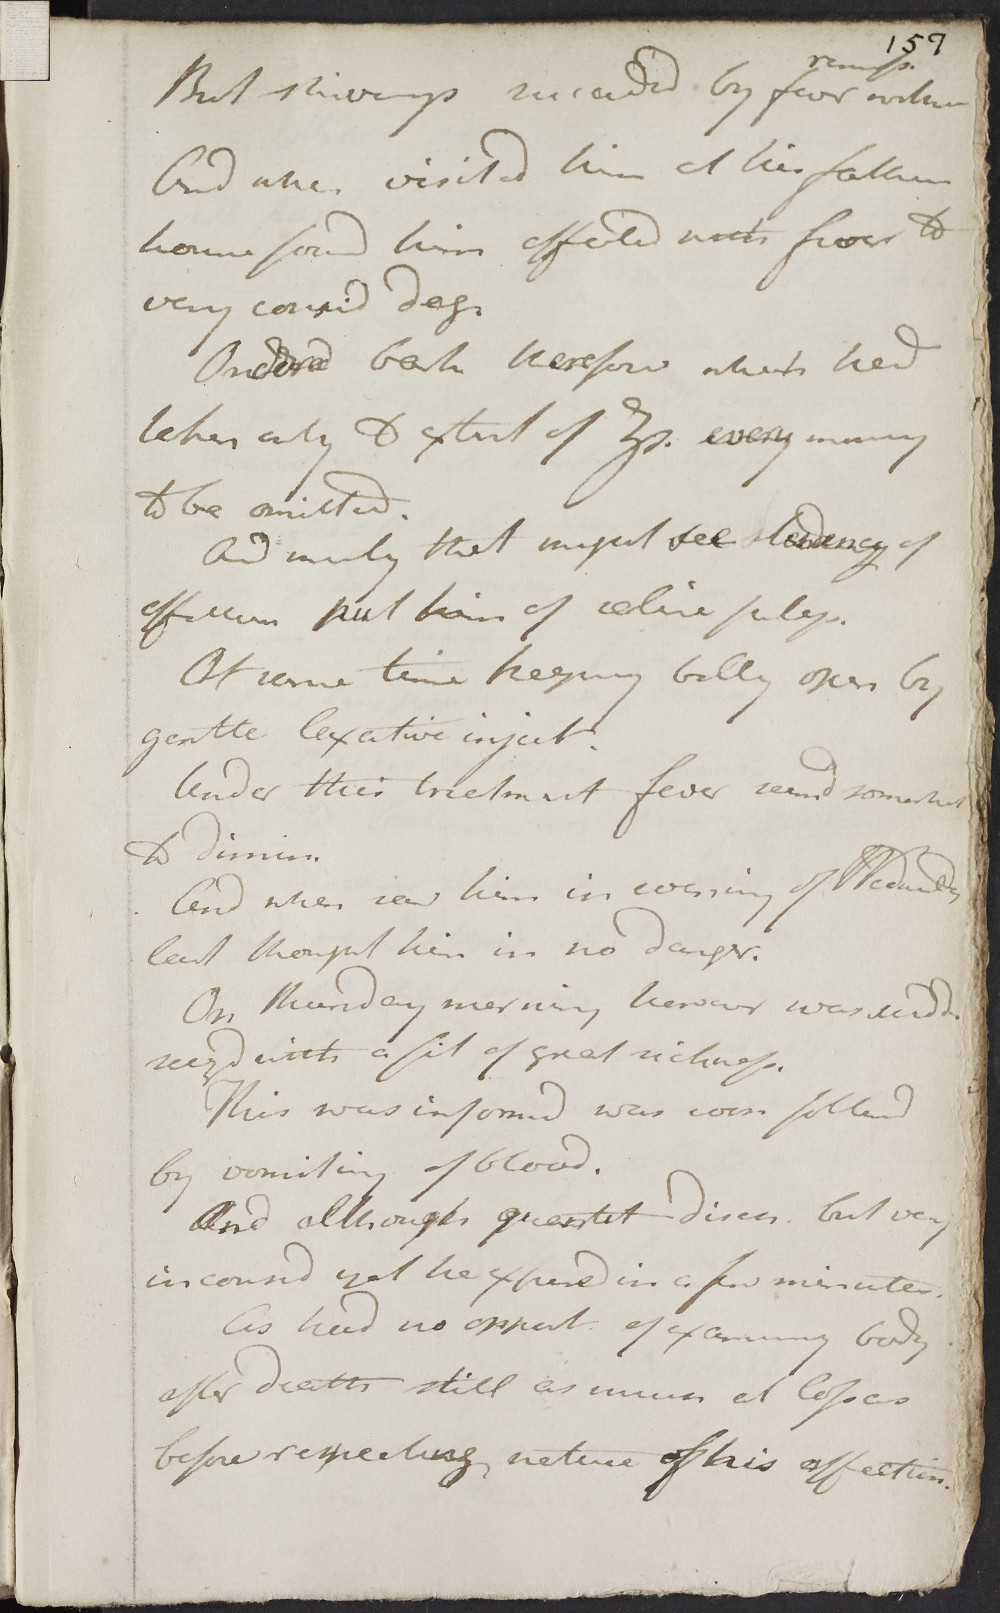 157
remiss.
But shiverings succeeded by fever when
And when visited him at his fathers
house found him affected with fever to
very consid deg.
Ordered bark therefore which had
taken only to extent of ʒs. every morning
to be omitted.
And merely that might see tendency of
affection put him of saline julep.
At same time keeping belly open by
gentle laxative inject.
Under this treatment fever seemd somewhat
to dimin.
And when saw him in evening of Wednesday
last thought him in no danger.
On Thursday morning however was sudd.
seizd with a fit of great sickness.
This was informd was soon followd
by vomiting of blood.
And although quantit disch. but very
inconsid yet he expired in a few minutes.
As had no opport. of examining body
after death still as much at loss as
before respecting nature of his affection.